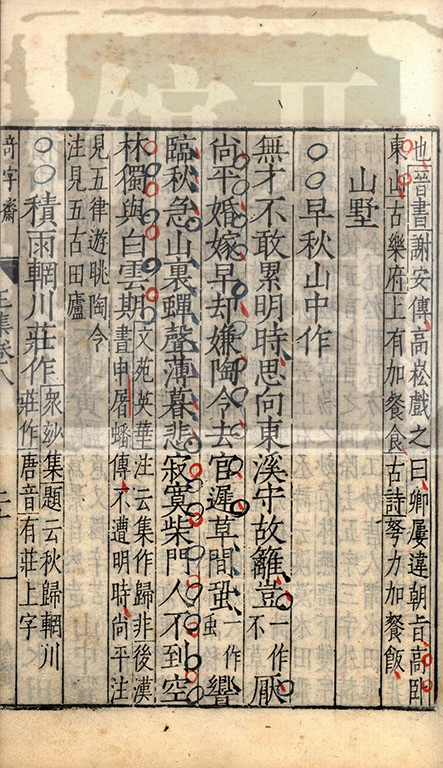 也晉書謝安傳高崧戲之曰卿屢違朝旨高臥
東山古樂府上有加餐食古詩努力加餐飯
山墅
○○早秋山中作
無才不敢累明時思向東溪守故籬豈一作不厭
尙平婚嫁早却嫌陶令去官遲草間蛩一作虫響
臨秋急山裏蟬聲薄暮悲寂寞柴門人不到空
林獨與白雲期文苑英華注云集作歸非後漢書申屠蟠傳不遭明時尙平注
見五律遊眺陶令
注見五古田廬
○○積雨輞川莊作衆妙集題云秋歸輞川莊作唐音有莊上字
奇字齋